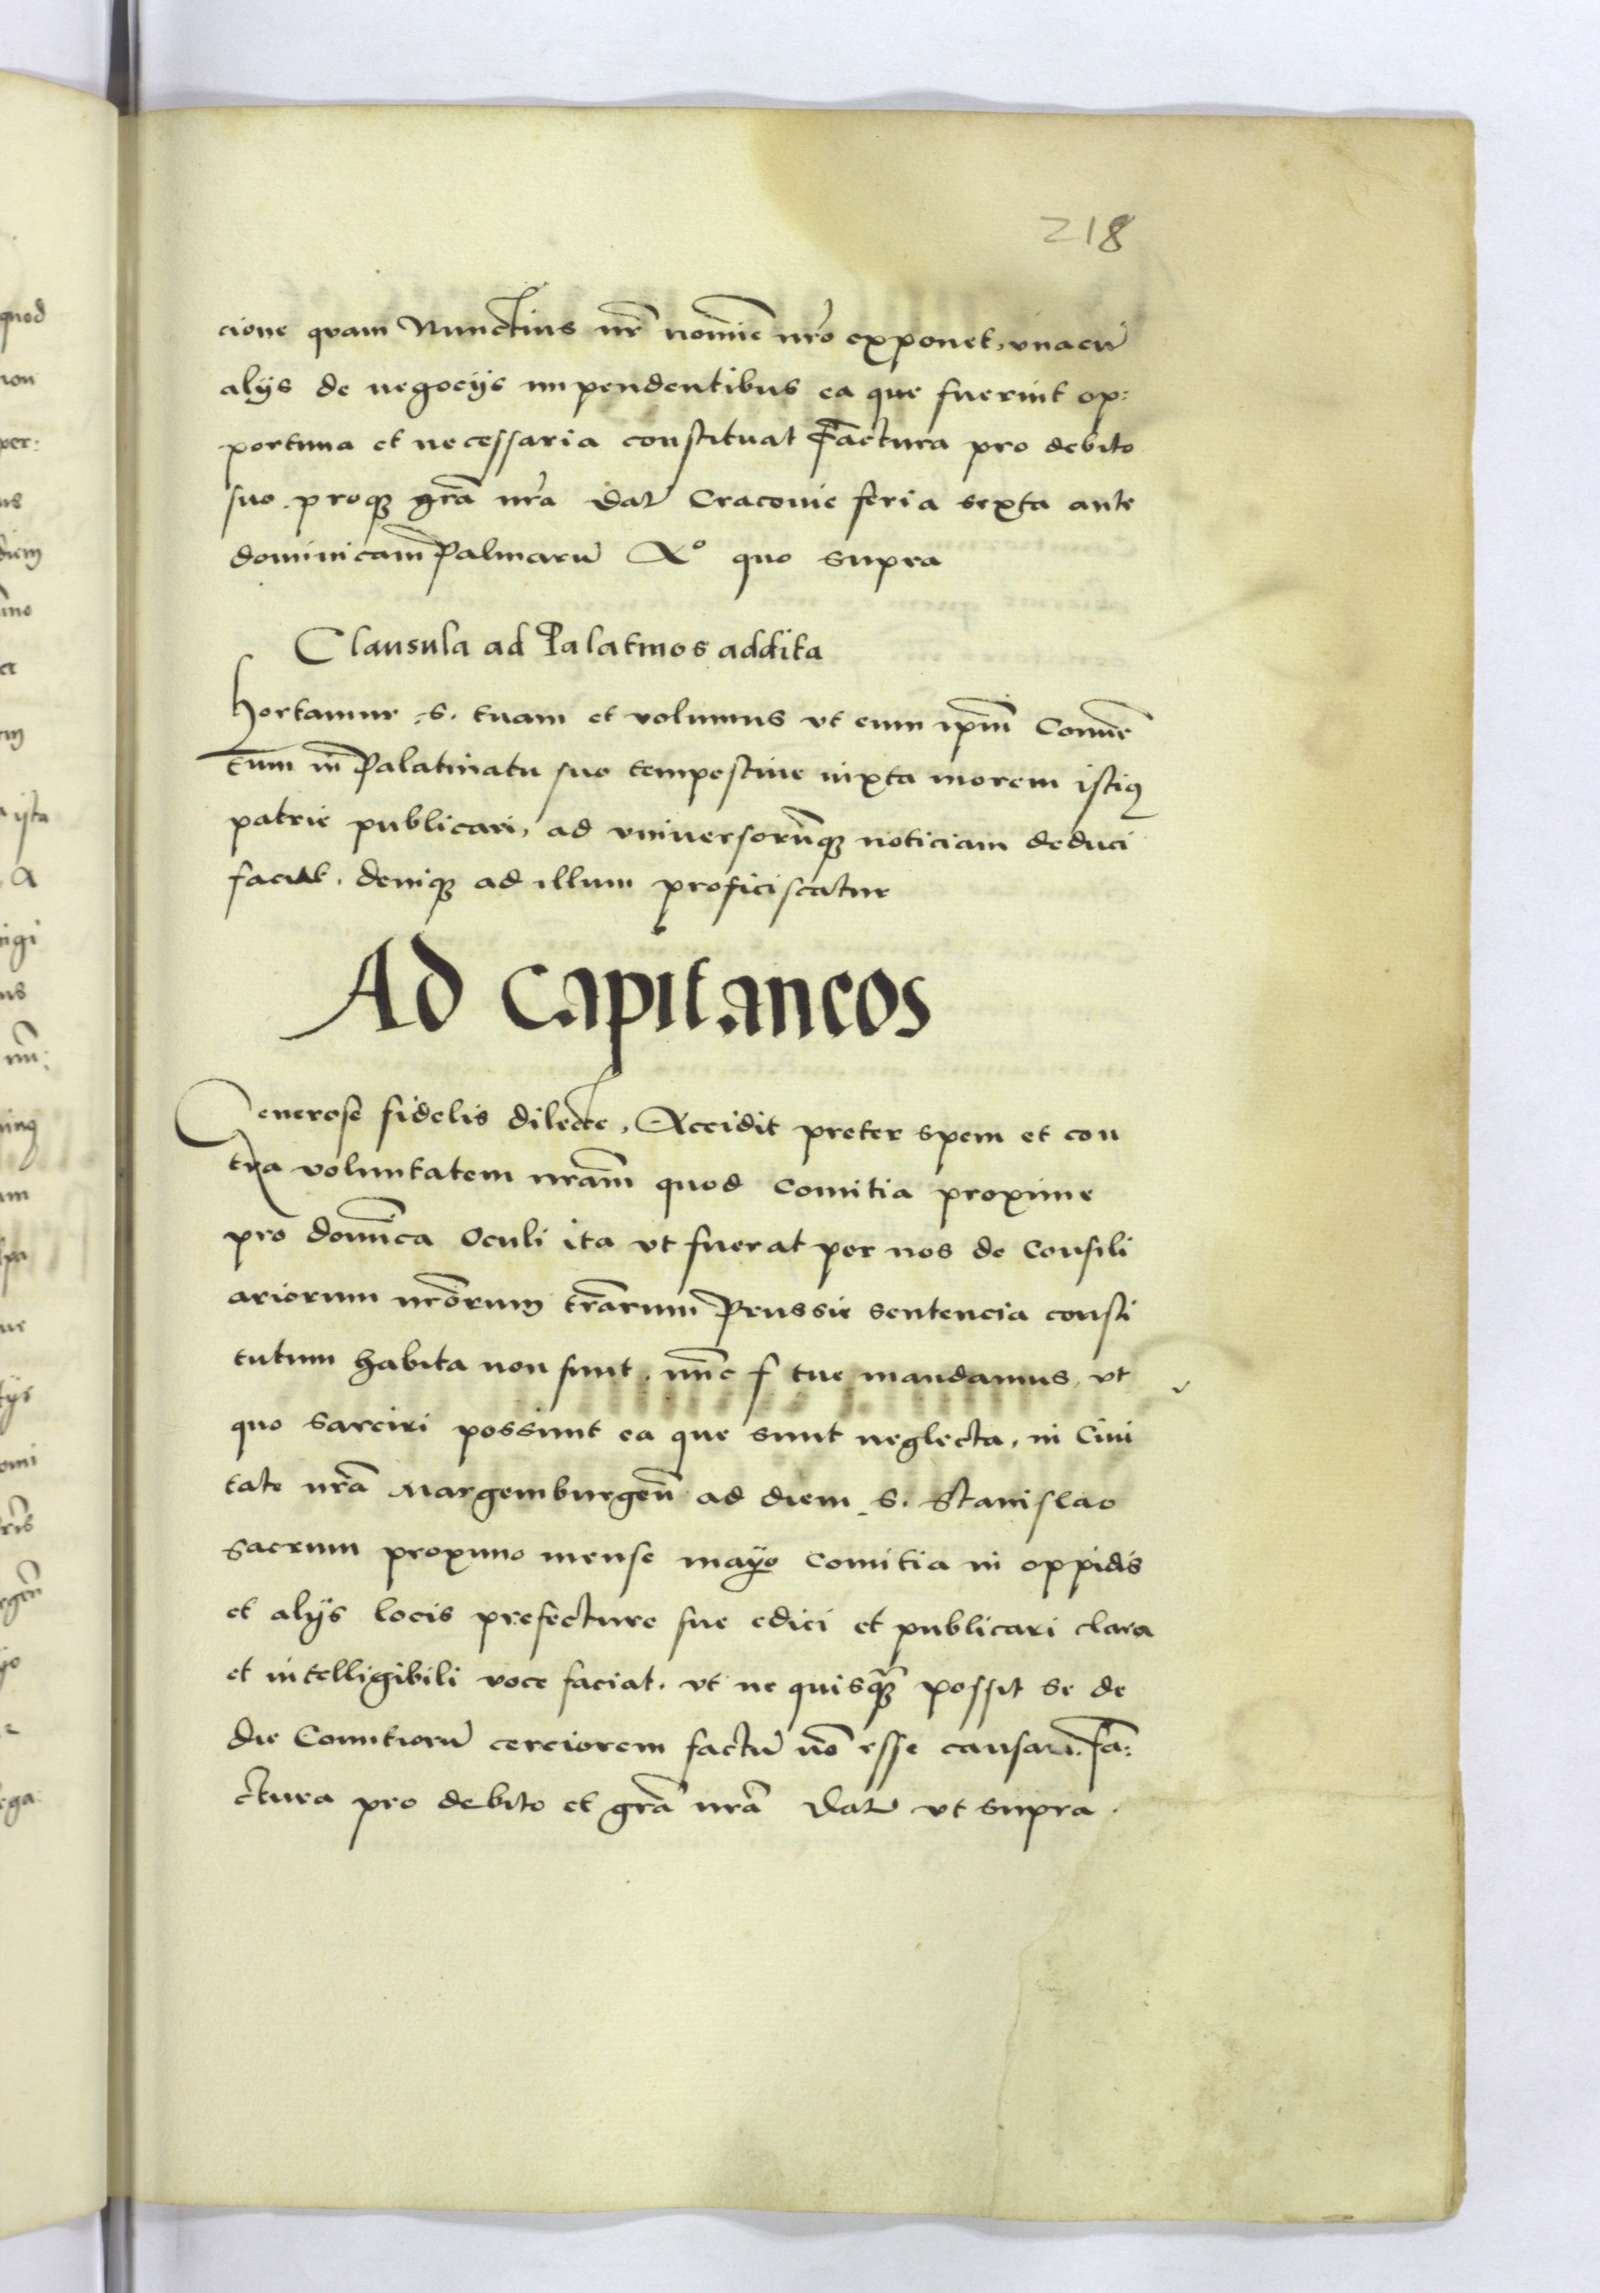 218
cione quam Nunctius nr̄ nomīe nr̄o exponet, vnacū
alijs de negocijs impendentibus ea que fuerint op:
portuna et necessaria constituat Factura pro debito
suo. proqꝫ grā nr̄a Dat Cracovie feria sexta ante
dominicam Palmarū Aº quo supra
Clausula ad Palatinos addita
Hortamur .S. tuam et volumus vt eum ipm̄ Conuē
tum in Palatinatu suo tempestiue iuxta morem istiꝰ
patrie publicari, ad vniversorūqꝫ noticiam deduci
faciat. deniqꝫ ad illum proficiscatur
Ad Capitaneos
Generose fidelis dilecte, Accidit preter spem et con
tra voluntatem nrām quod Comitia proxime
pro domīca Oculi ita vt fuerat per nos de Consili
ariorum nrōrum trārum Prussie sentencia consti
tutum habita non sunt. nūc f tue mandamus, vt
quo sarciri possunt ea que sunt neglecta, in Ciui
tate nrā Margemburgeñ ad diem S. Stanislao
sacrum proximo mense mayo Comitia in oppidis
et alijs locis prefecture sue edici et publicari clara
et intelligibili voce faciat. vt ne quisqꝫ possit se de
die Comitiorū cerciorem factū nō esse causari. fa:
ctura pro debito et grā nrā Dat vt supra.
quod
non
per:
diem
ista
A
nigi